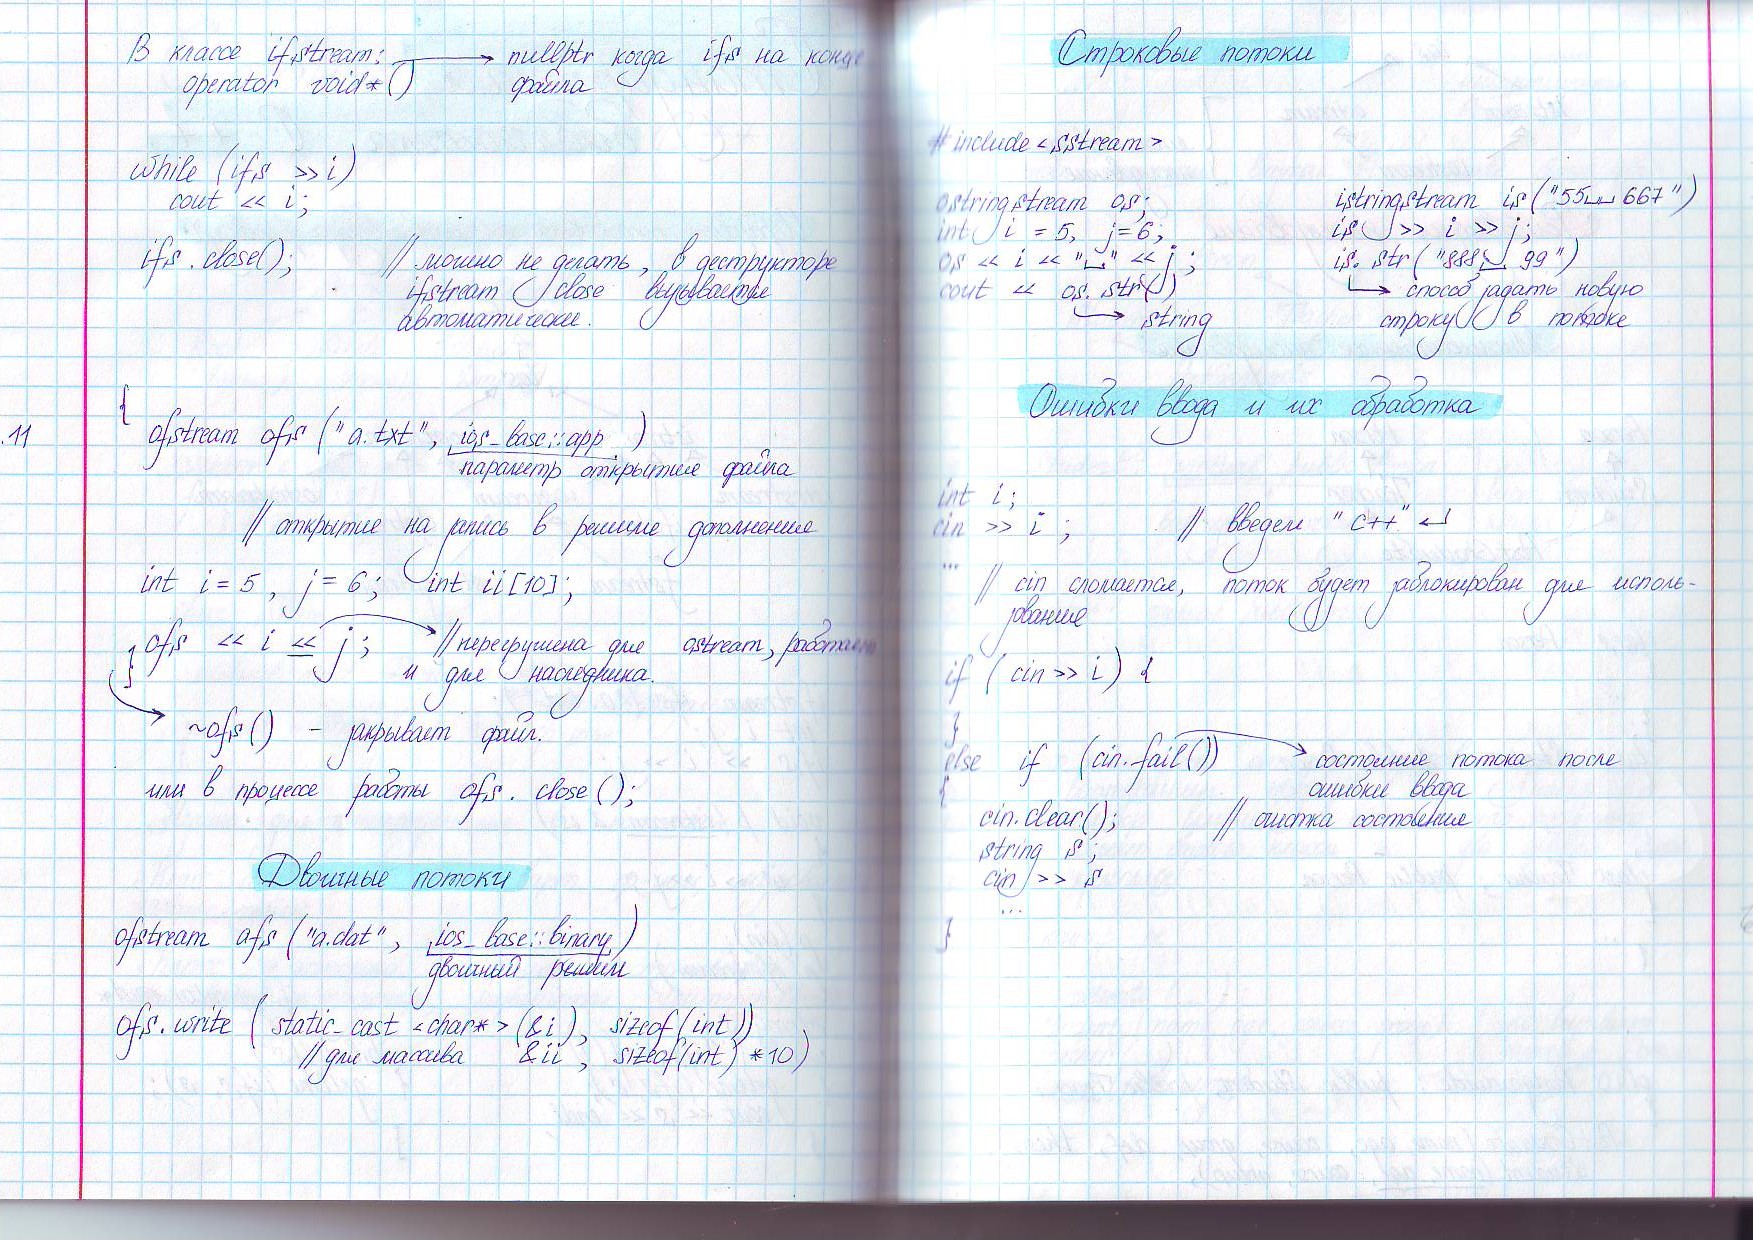 В классе ifstream: → nullptr когда ifs на конце
operator void*() файла
while (ifs >> i)
cout << i;
ifs.close(); // можно не делать, в деструкторе
ifstream close вызывается
автоматически.
{
.11
ofstream ofs ("a.txt", ios_base::app )
параметр открытия файла
// открытие на запись в режиме дополнения
int i = 5, j = 6; int ii[10];
ofs << i << j; // перегружена для ostream, работает
} и для наследника.
~ofs() - закрывает файл.
или в процессе работы ofs.close();
Двоичные потоки
ofstream ofs ("a.dat", ios_base::binary)
двоичный режим
ofs.write ( static_cast <char*> (&i), sizeof(int))
// для массива &ii, sizeof(int) * 10)
Строковые потоки
#include <sstream>
ostringstream os;
int i = 5, j=6;
os << i << "␣" << j;
cout << os.str()
→ string
istringstream is("55␣␣667")
is >> i >> j;
is.str("888␣99")
→ способ задать новую
строку в потоке
Ошибки ввода и их обработка
int i;
cin >> i; // введем "c++" ↵
...
// cin сломается, поток будет заблокирован для исполь-
зования
if (cin >> i) {
}
else if (cin.fail()) → состояние потока после
{ ошибки ввода
cin.clear(); // очистка состояния
string s;
cin >> s
...
}